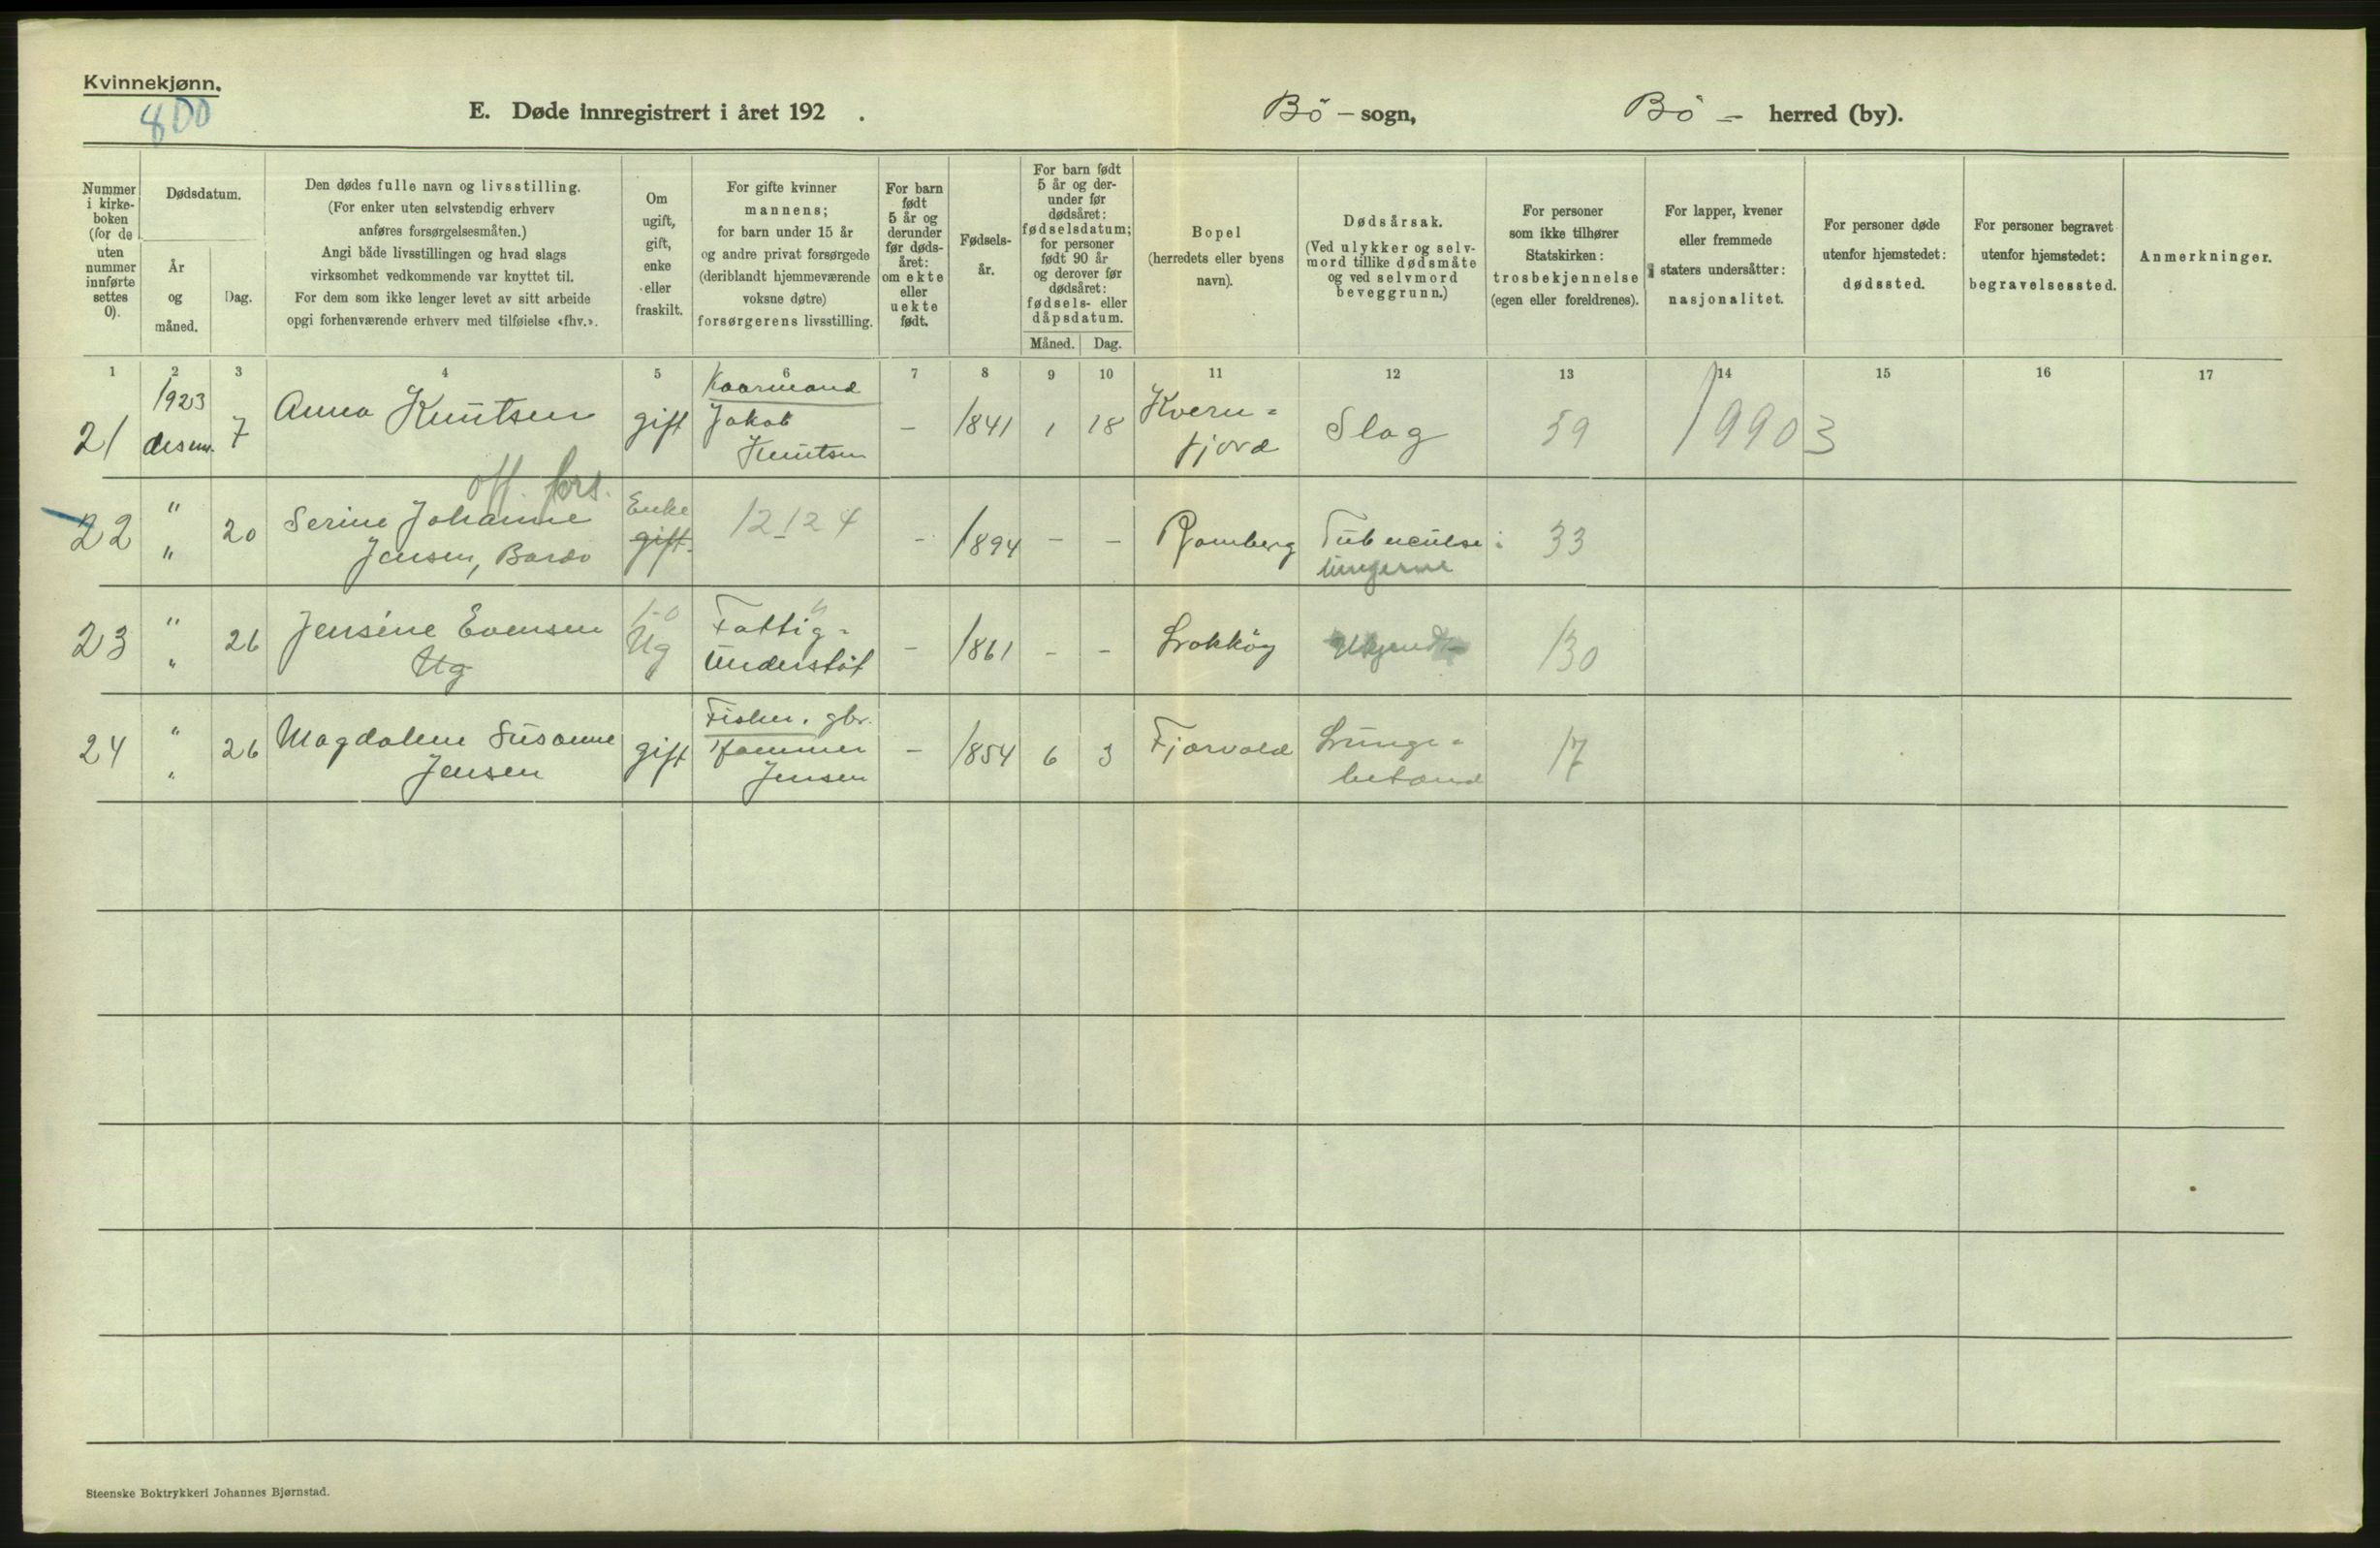 Kvinnekjønn.
800
E. Døde innregistrert i året 192 .
Bö - sogn,
Bö - herred (by).
Nummer
i kirke-
boken
(for de
uten
nummer
innførte
settes
0).
Dødsdatum.
År
og
måned.
Dag.
Den dødes fulle navn og livsstilling.
(For enker uten selvstendig erhverv
anføres forsørgelsesmåten.)
Angi både livsstillingen og hvad slags
virksomhet vedkommende var knyttet til.
For dem som ikke lenger levet av sitt arbeide
opgi forhenværende erhverv med tilføielse «fhv.».
Om
ugift,
gift,
enke
eller
fraskilt.
For gifte kvinner
mannens;
for barn under 15 år
og andre privat forsørgede
(deriblandt hjemmeværende
voksne døtre)
forsørgerens livsstilling.
For barn
født
5 år og
derunder
før døds-
året:
om ekte
eller
uekte
født.
Fødsels-
år.
For barn født
5 år og der-
under før
dødsåret:
fødselsdatum;
for personer
født 90 år
og derover før
dødsåret:
fødsels- eller
dåpsdatum.
Måned.
Dag.
Bopel
(herredets eller byens
navn).
Dødsårsak.
(Ved ulykker og selv-
mord tillike dødsmåte
og ved selvmord
beveggrunn.)
For personer
som ikke tilhører
Statskirken:
trosbekjennelse
(egen eller foreldrenes).
For lapper, kvener
eller fremmede
staters undersåtter:
nasjonalitet.
For personer døde
utenfor hjemstedet:
dødssted.
For personer begravet
utenfor hjemstedet:
begravelsessted.
Anmerkninger.
1 2 3 4 5 6 7 8 9 10 11 12 13 14 15 16 17
21
1923
desem.
7
Anna Knutsen
gift
Kaarmand
Jakob
Knutsen
-
1841
1
18
Kvern-
fjord
Slag
59
19903
off. fors.
22
"
"
20
Serine Johanne
Jensen, Bardo
Enke
gift.
12124
-
1894
-
-
Ramberg
Tuberculse i
lungerne
33
23
"
"
26
Jensine Evensen
Ug
1-0
Ug
Fattig-
understöt
-
1861
-
-
Lokköy
Ukjendt
130
24
"
"
26
Magdalene Susanne
Jensen
gift
Fisker. gbr.
Hammer
Jensen
-
1854
6
3
Fjærvold
Lunge-
betænd
17
Steenske Boktrykkeri Johannes Bjørnstad.